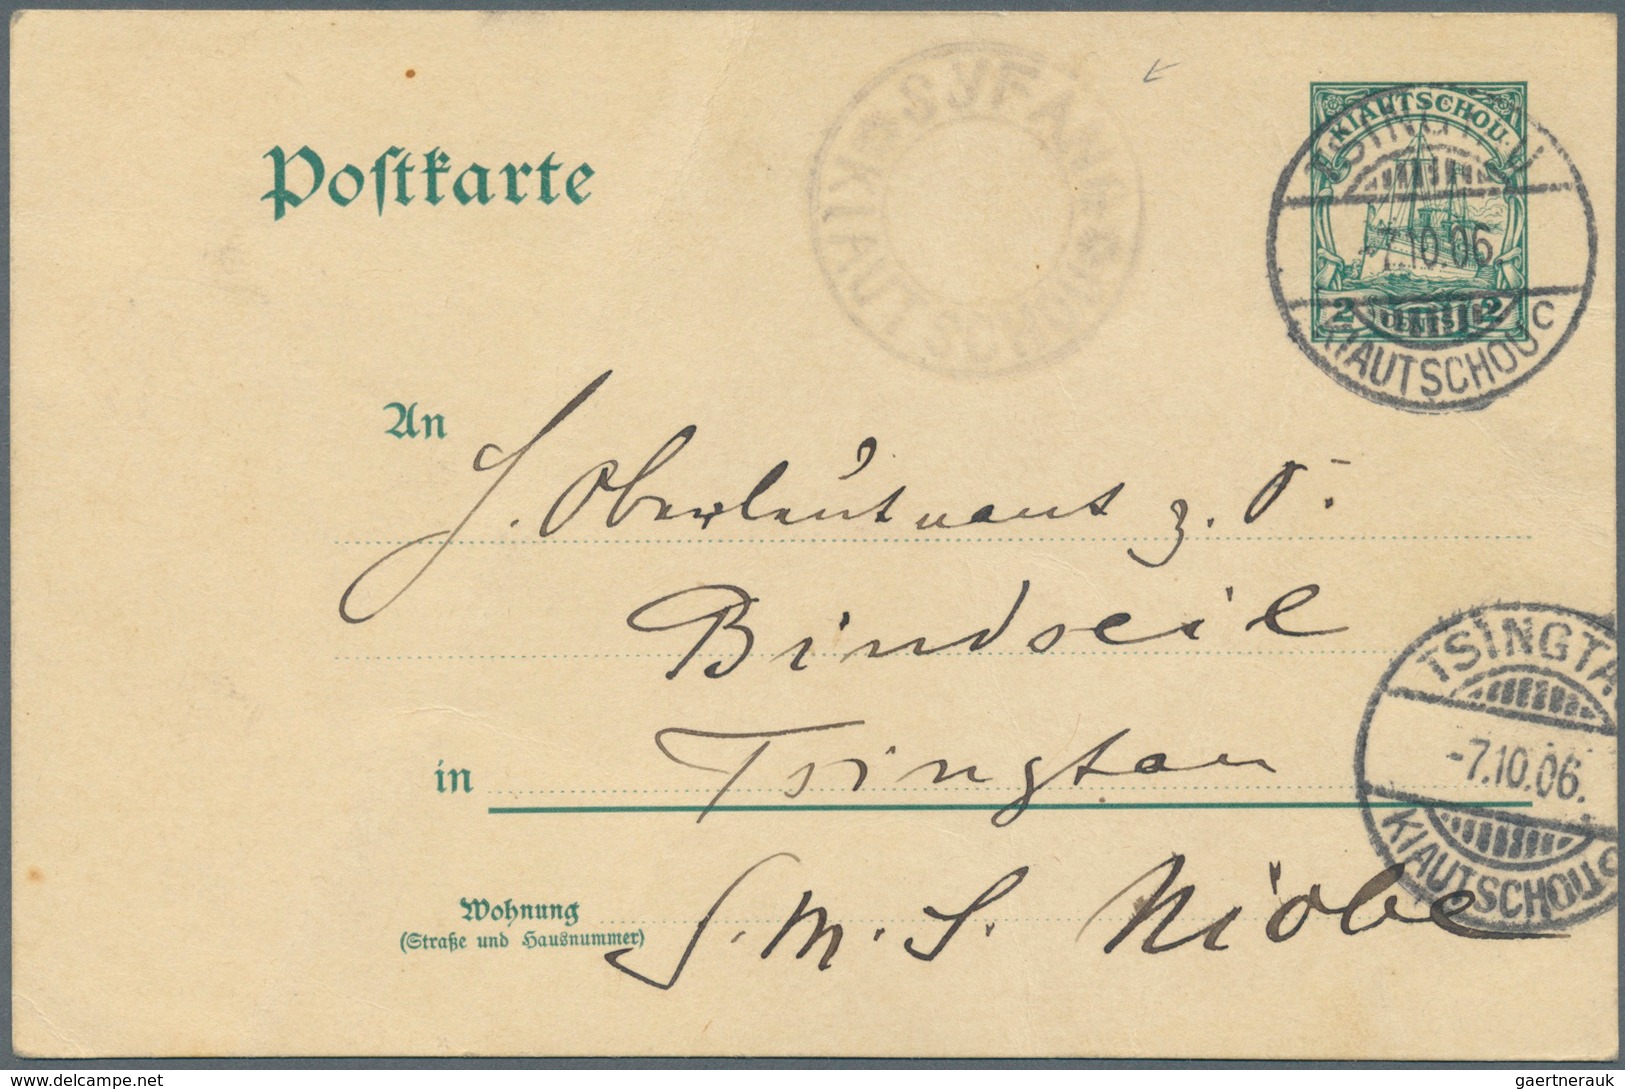 Postkarte
SYFANG
KIAUTSCHOU
KIAUTSCHOU
2 CENTS 2
TSINGTAU
-7.10.06.
KIAUTSCHOU
c
An
Oberleutnant z. S.
Bindseil
in Tsingtau
TSINGTA
-7.10.06.
KIAUTSCHOU
c
Wohnung
(Straße und Hausnummer)
S. M. S. Niobe
www.delcampe.net
gaertnerauk